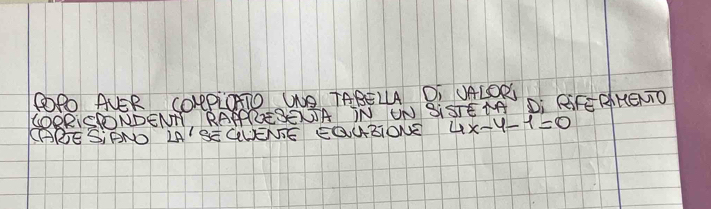 DOPO AVER COMPILATO UNA TABELLA DI VALORI
CORRISPONDENTI RAPPRESENTA IN UN SISTEMA DI RIFERIMENTO
CARTESIANO LA' SEGUENTE EQUAZIONE 4x-y-1=0